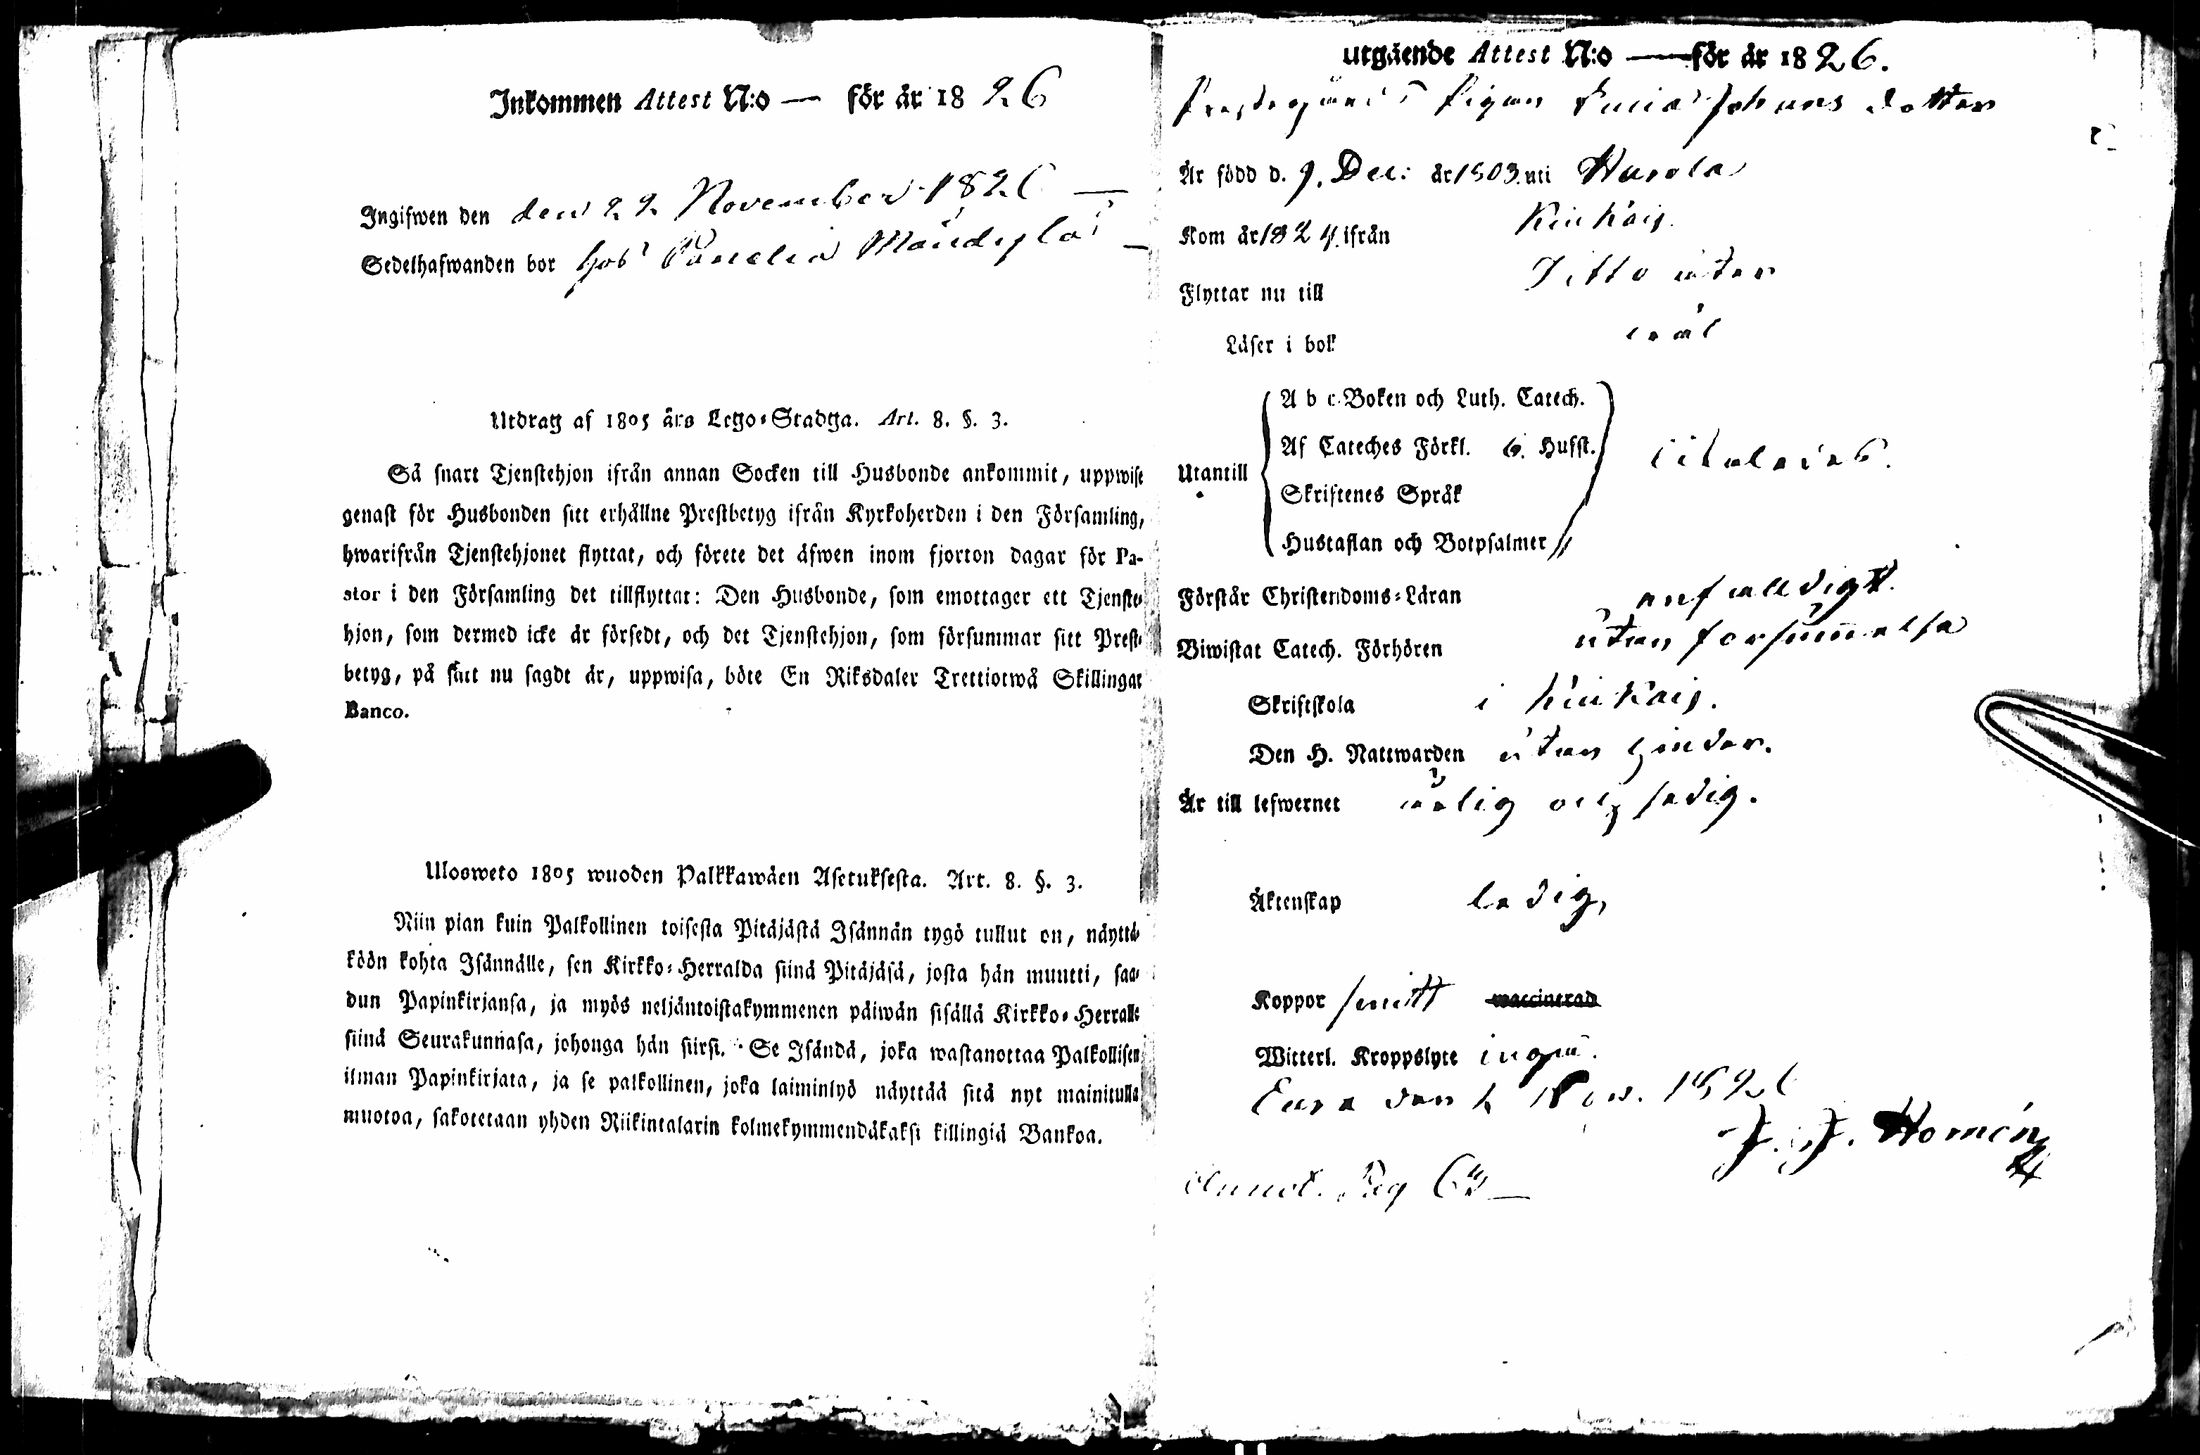 Inkommen Attest N:o — för år 1826
Ingifwen den den 22 November 1826 —
Sedelhafwanden bor hos Panelia Mändylä —
Utdrag af 1805 års Lego-Stadga. Art. 8. §. 3.
Så snart Tjenstehjon ifrån annan Socken till Husbonde ankommit, uppwise
genast för Husbonden sitt erhållne Prestbetyg ifrån Kyrkoherden i den Församling,
hwarifrån Tjenstehjonet flyttat, och förete det äfwen inom fjorton dagar för Pa-
stor i den Församling det tillflyttat: Den Husbonde, som emottager ett Tjenste-
hjon, som dermed icke är försedt, och det Tjenstehjon, som försummar sitt Prest-
betyg, på sätt nu sagdt är, uppwisa, böte En Riksdaler Trettiotwå Skillingar
Banco.
Ulosweto 1805 wuoden Palkkawäen Asetuksesta. Art. 8. §. 3.
Niin pian kuin Palkollinen toisesta Pitäjästä Isännän tygö tullut on, näyttä-
köön kohta Isännälle, sen Kirkko-Herralda siinä Pitäjäsä, josta hän muutti, saa-
dun Papinkirjansa, ja myös neljäntoistakymmenen päiwän sisällä Kirkko-Herralle
siinä Seurakunnasa, johonga hän siirsi. Se Isändä, joka wastanottaa Palkollisen
ilman Papinkirjata, ja se palkollinen, joka laiminlyö näyttää sitä nyt mainitulla
muotoa, sakotetaan yhden Riikintalarin kolmekymmendäkaksi killingiä Bankoa.
utgående Attest N:o — för år 1826.
Prestegårds Pigan Lucia Johans dotter
Är född d. 9. Dec: år 1803. uti Harola
Kom år 1824 ifrån Kiukais
Flyttar nu till Ditto åter
Läser i bok wäl
Utantill
A b c-Boken och Luth. Catech.
Af Cateches Förkl. 6. Hufst.
Skriftenes Språk
Hustaflan och Botpsalmer
Förstår Christendoms-Läran enfaldigt.
Biwistat Catech. Förhören utan försummelse
Skriftskola i Kiukais.
Den H. Nattwarden utan hinder.
Är till lefwernet ärlig och sedig.
Äktenskap ledig,
Koppor haft waccinerad
Witterl. Kroppslyte inga.
Eura den 2 Nov. 1826
J. J. Homén
Annot. Pag